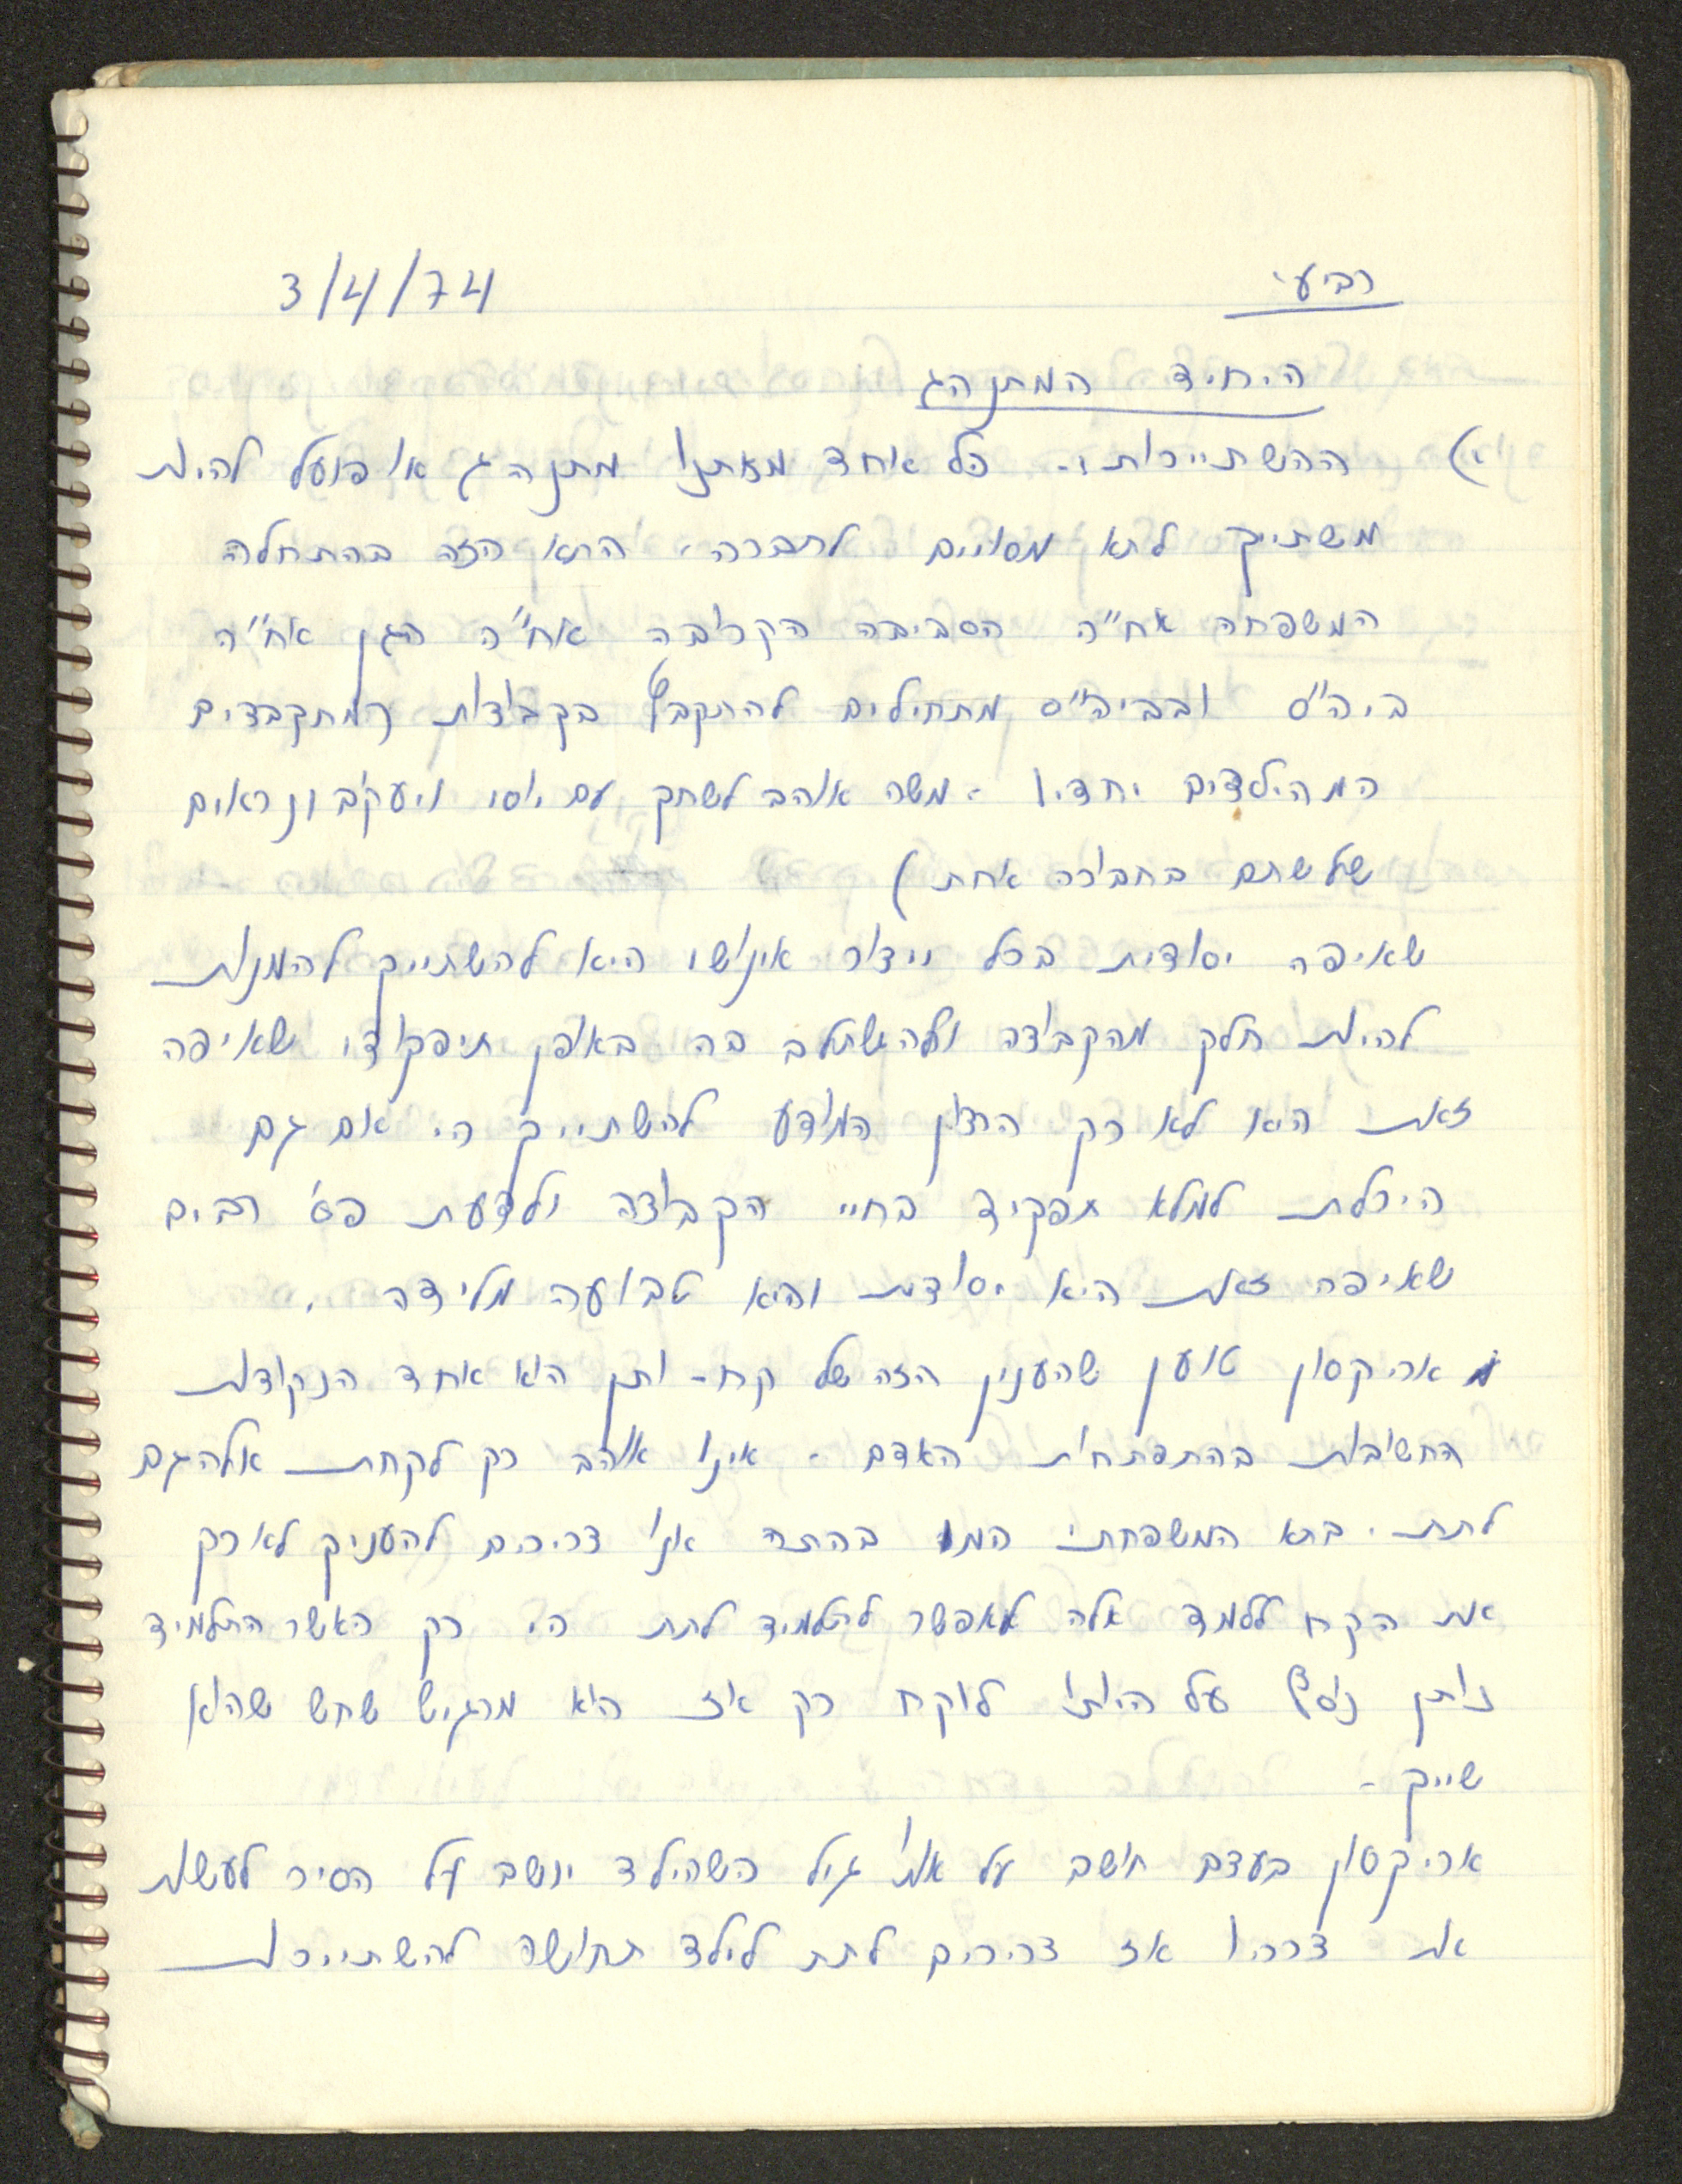 רביעי 3/4/74
היחיד המתנהג
א) ההשתייכות:- כל אחד מאתנו מתנהג או פועל להיות
משתייך לתא מסויים לחברה. התא הזה בהתחלה
המשפחה אח"ה הסביבה הקרובה אח"ה הגן אח"ה
ביה"ס ובביה"ס מתחילים להתקבץ בקבוצות (מתקבדים
המהילדים יחדיו - משה אוהב לשחק עם יוסי ויעקב ונראים
שלשתם בחבורה אחת)
שאיפה יסודית בכל ייצור אינושי היא להשתייך להמנות
להיות חלק מהקבוצה ולהשתלב בה באופן תיפקודי שאיפה
זאת היא לא רק הרצון המודע להשתייך הי אם גם
היכלת למלא תפקיד בחיי הקבוצה ולדעת פס' רבים
שאיפה זאת היא יסודית והיא טבועה מלידה .
אריקסון טוען שהענין הזה של קח- ותן הוא אחד הנקודות
החשובות בהתפתחות האדם - אינו אוהב רק לקחת אלה גם
לתת. בתא המשפחתי בהתה אנו צריכים להעניק לא רק
את הקח ללמד אלה לאפשר לתלמיד לתת הי רק כאשר התלמיד
נותן נוסף על היותו לוקח רק אז הוא מרגיש שחש שהוא
שייך -
אריקסון בעצם חושב על אותו גיל כשהילד יושב על הסיר לעשות
את צרכיו אז צריכים לתת לילד תחושה להשתייכות